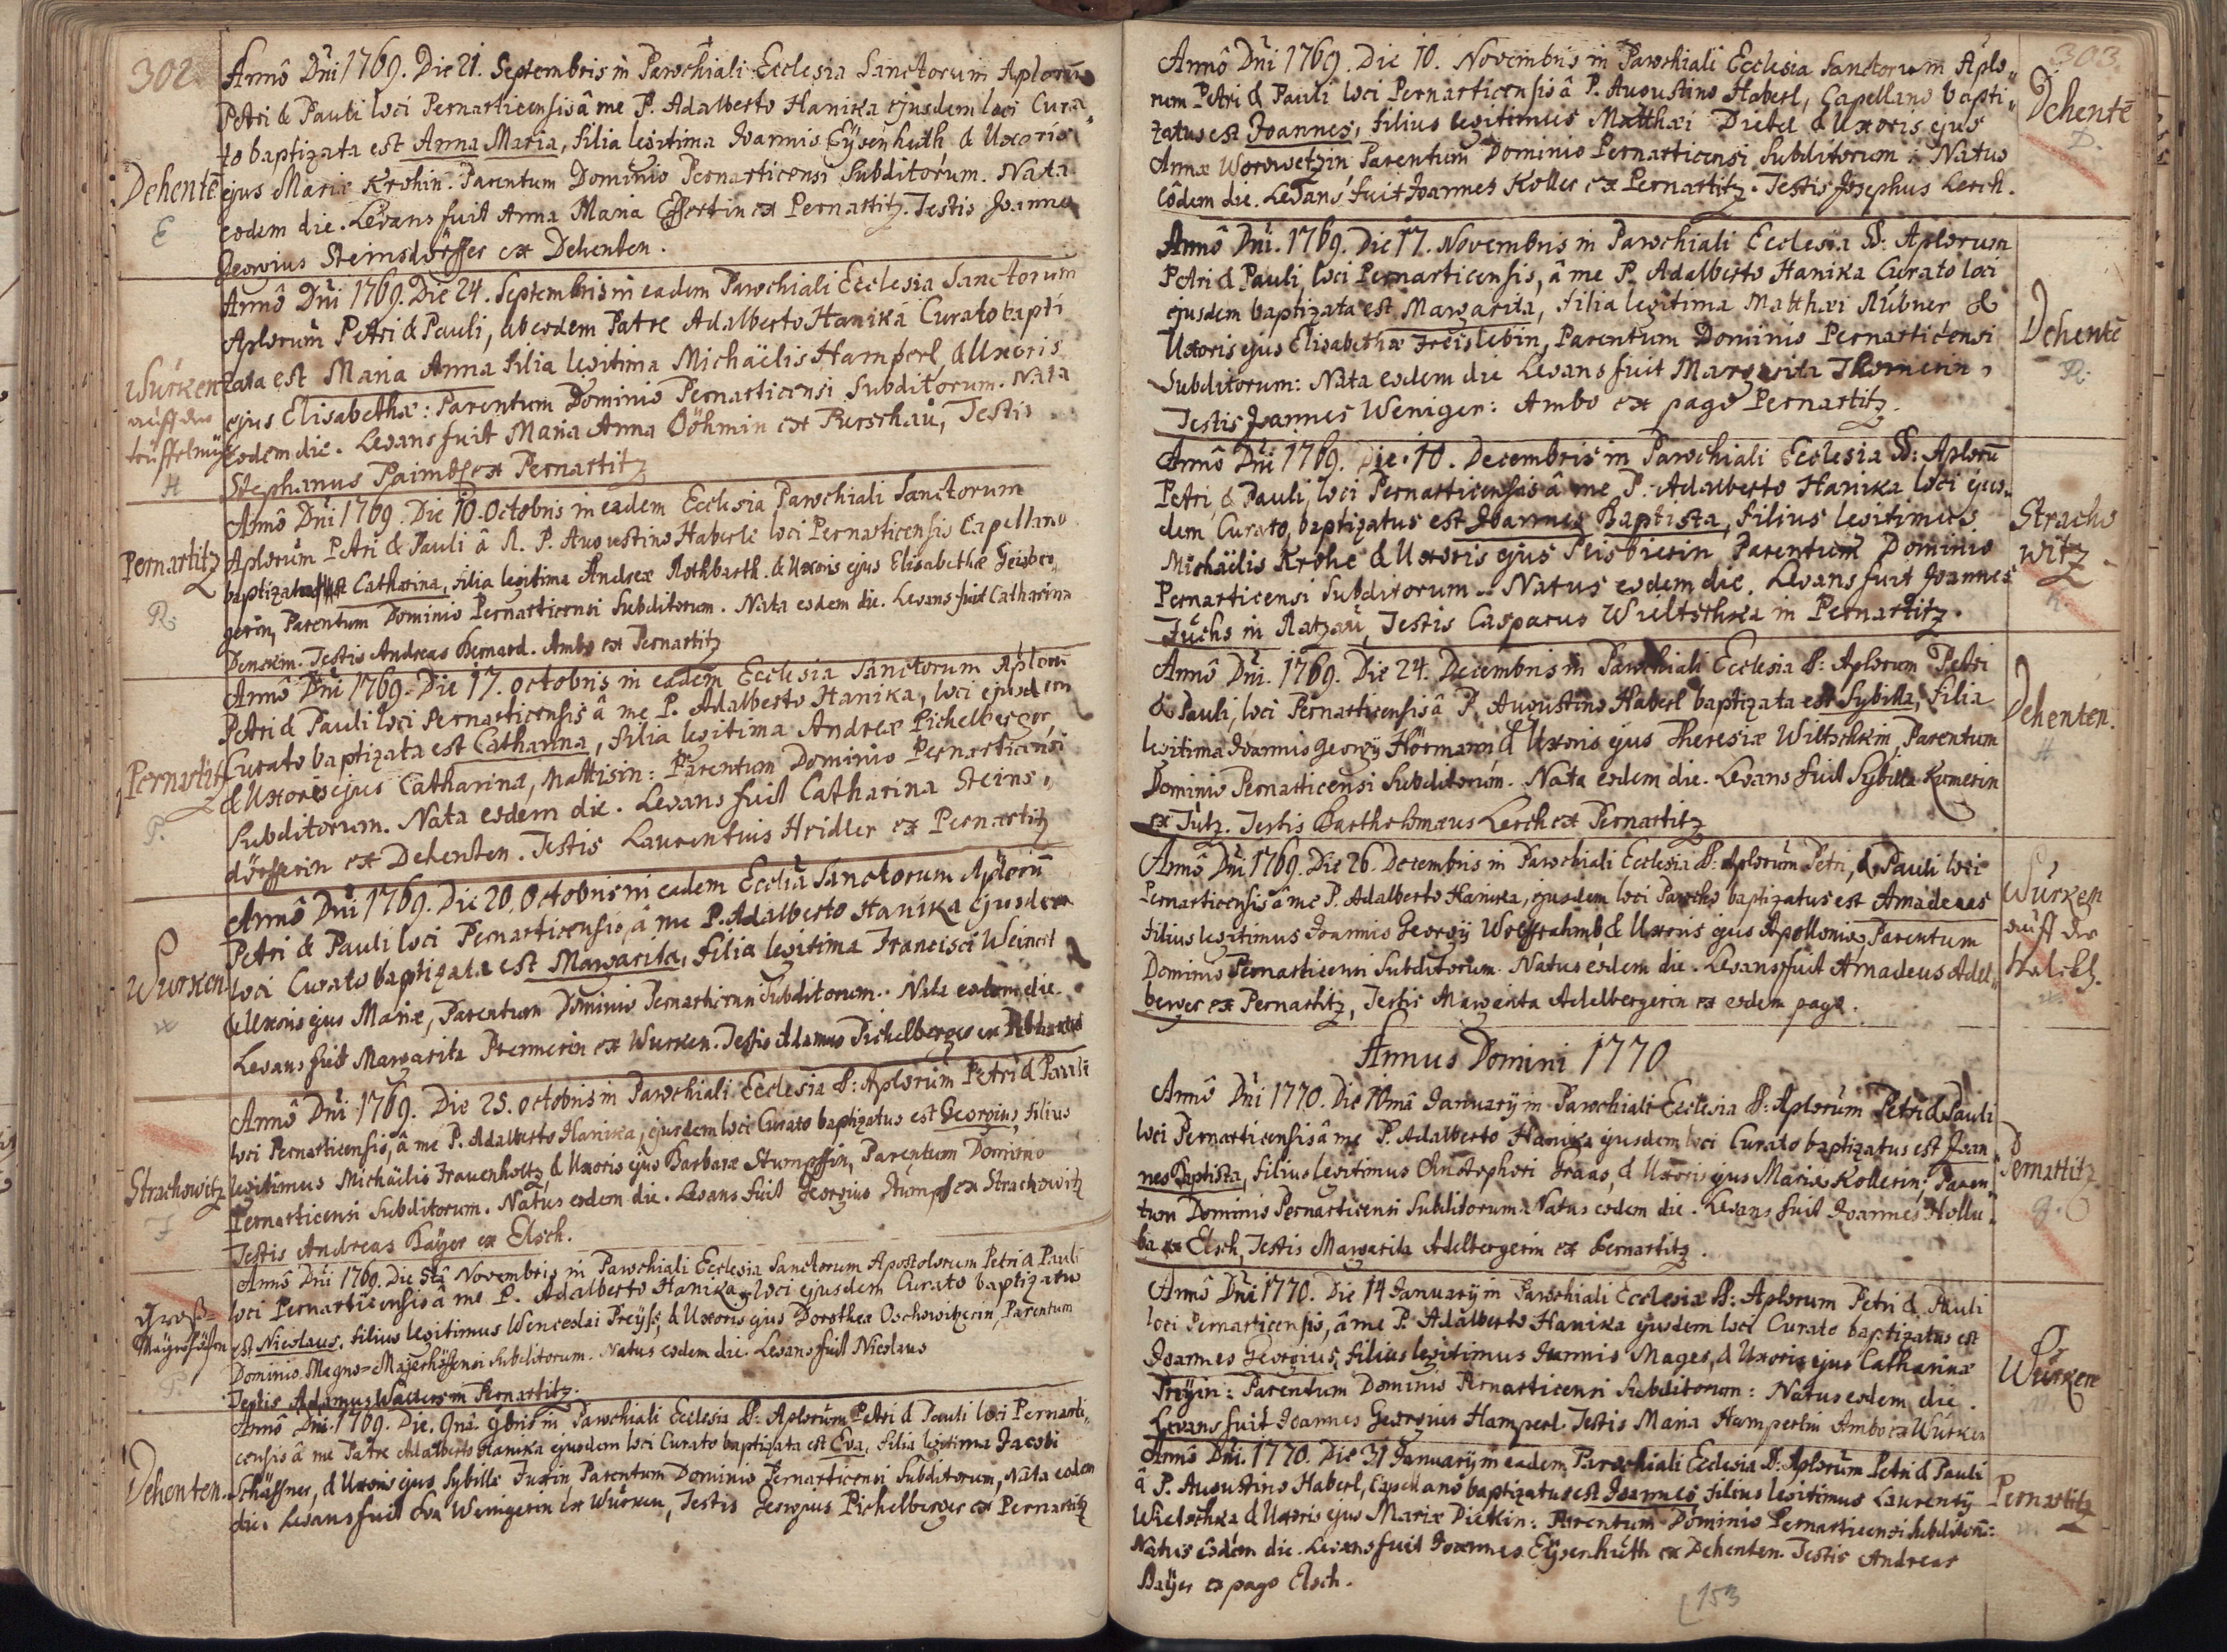 302.
Annô Dni 1769. Die 21. Septembris in Parochiali Ecclesia Sanctorum Aplorũ
Petri & Pauli loci Pernarticensis â me P. Adalberto Hanika ejusdem loci Cura
to baptizata est Anna Maria, filia legitima Joannis Eÿsenhuth & Uxoris
Dehentẽ ejus Mariæ Krohin. Parentum Dominio Pernarticensi Subditorum. Nata
eodem die. Levans fuit Anna Maria Effertin ex Pernartitz. Testis Joannes
E
Georgius Steinsdörffer ex Dehenten.
Annô Dni 1769. Die 24. Septembris in eadem Parochiali Ecclesia Sanctorum
Aplorum Petri & Pauli, ab eodem Patre Adalberto Hanika Curato bapti
Wurken zata est Maria Anna filia legitima Michaëlis Hamperl, & Uxoris
auff der ejus Elisabethæ: Parentum Dominio Pernarticensi Subditorum. Nata
eodem die. Levans fuit Maria Anna Böhmin ex Turschau, Testis
H
Stephanus Paimbl ex Pernartitz
Annô Dni 1769. Die 10. Octobris in eadem Ecclesia Parochiali Sanctorum
Pernartitz Aplorum Petri & Pauli â R. P. Augustino Haberle loci Pernarticensis Capellano
baptizata est Catharina, filia legitima Andreæ Rothbarth. & Uxoris ejus Elisabethæ Geisber
R.
gerin, Parentum Dominio Pernarticensi Subditorum. Nata eodem die. Levans fuit Catharina
Testis Andreas Bernard. Ambo ex Pernartitz
Annô Dni 1769. Die 17. Octobris in eadem Ecclesia Sanctorum Aplorũ
Petri & Pauli loci Pernarticensis â me P. Adalberto Hanika, loci ejusdem
Curato baptizata est Catharina, filia legitima Andreæ Pichelberger,
Pernartitz & Uxoris ejus Catharinæ, Mattisin: Parentum Dominio Pernarticensi
Subditorum. Nata eodem die. Levans fuit Catharina Steins,,
P.
dörfferin ex Dehenten. Testis Laurentius Hridler ex Pernartitz
Annô Dni 1769. Die 20. Octobris in eadem Ecclia Sanctorum Aplorũ
Petri & Pauli loci Pernarticensis, â me P. Adalberto Hanika ejusdem
Wurken loci Curato baptizata est Margarita, filia legitima Francisci Weinert
& Uxoris ejus Mariæ, Parentum Dominio Pernarticensi Subditorum. Nata eodem die.
W
Levans fuit Margarita Premerin ex Wurken. Testis Adamus Pichelberger ex
Annô Dni 1769. Die 25. Octobris in Parochiali Ecclesia S: Aplorum Petri & Pauli
loci Pernarticensis, â me P. Adalberto Hanika, ejusdem loci Curato baptizatus est Georgius, filius
Strachowitz legitimus Michäilis Frauenholtz, & Uxoris ejus Barbaræ Stumpffin, Parentum Dominio
F
Pernarticensi Subditorum. Natus eodem die. Levans fuit Georgius Stumpf ex Strachowitz
Testis Andreas Baÿer ex Elsch.
Annô Dni 1769. Die 5tâ Novembris in Parochiali Ecclesia Sanctorum Apostolorum Petri & Pauli
loci Pernarticensis â me P. Adalberto Hanika, loci ejusdem Curato baptizatus
Groß= est Nicolaus, filius legitimus Wenceslai Preÿss, & Uxoris ejus Dorothea Oschowitzerin, Parentum
Maÿerhöffen Dominio Magno=Majerhöffensi Subditorum. Natus eodem die. Levans fuit Nicolaus
P.
Testis Adamus Walter in Pernartitz.
Annô Dni. 1769. Die. 9nâ 9bris in Parochiali Ecclesia S: Aplorum Petri & Pauli loci Pernarti,,
censis â me Patre Adalberto Hanika ejusdem loci Curato baptizata est Eva, filia legitima Jacobi
Dehenten. Schäffner, & Uxoris ejus Sybillæ Fuxin Parentum Dominio Pernarticensi Subditorum, Nata eodem
die. Levans fuit Eva Weinigerin ex Wurken, Testis Georgius Pichelberger ex Pernartitz
303
Annô Dni 1769. Die 10. Novembris in Parochiali Ecclesia Sanctorum Aplo,,
rum Petri & Pauli loci Pernarticensis â P. Augustino Haberl, Capellano bapti,, Dehentẽ
zatus est Joannes, filius legitimus Matthæi Dietel & Uxoris ejus
D.
Annæ Worowetzin, Parentum Dominio Pernarticensi Subditorum: Natus
eôdem die. Levans fuit Joannes Koller ex Pernartitz. Testis Josephus Lerch.
Annô Dni. 1769. Die 17. Novembris in Parochiali Ecclesia SS: Aplorum
Petri & Pauli, loci Pernarticensis, â me P. Adalberto Hanika Curato loci
ejusdem baptizata est Margarita, filia legitima Matthæi Rübner &
Uxoris ejus Elisabethæ Freislebin, Parentum Dominio Pernarticensi Dehentẽ
Subditorum: Nata eodem die Levans fuit Margarita Thornerin,
R.
Testis Joannes Weniger: Ambo ex pago Pernartitz.
Annô Dni 1769. Die 10. Decembris in Parochiali Ecclesia SS: Aplorũ
Petri, & Pauli, loci Pernarticensis â me P. Adalberto Hanika loci ejus,,
dem Curato, baptizatus est Joannes Baptista, filius legitimus Stracho
Michäëlis Krohe & Uxoris ejus Parentum Dominio witz
Pernarticensi Subditorum. Natus eodem die. Levans fuit Joannes
K.
Fuchs in Ratzau, Testis Casparus Wieltschka in Pernartitz.
Annô Dni. 1769. Die 24. Decembris in Parochiali Ecclesia S: Aplorum Petri
& Pauli, loci Pernarticensis â P. Augustino Haberl baptizata est Sybilla, filia Dehenten.
legitima Joannis Georgÿ Hörmann & Uxoris ejus Theresiæ Wiltschkin, Parentum
H
Dominio Pernarticensi Subditorum. Nata eodem die. Levans fuit Sybilla Kumerin
ex Tutz. Testis Bartholomæus Lerch ex Pernartitz
Annô Dni 1769. Die 26. Decembris in Parochiali Ecclesia S: Aplorum Petri, & Pauli loci
Pernarticensis â me P. Adalberto Hanika, ejusdem loci Parocho baptizatus est Amadeus Wurken
filius legitimus Joannis Georgÿ Wolffrahmb, & Uxoris ejus Apolloniæ Parentum auff der
Dominio Pernarticensi Subditorum. Natus eodem die. Levans fuit Amadeus Adel,,
berger ex Pernartitz, Testis Margarita Adelbergerin ex eodem pago.
Annus Domini 1770
Annô Dni 1770. Die 10mâ Januarÿ in Parochiali Ecclesia S: Aplorum Petri & Pauli
loci Pernarticensis â me P. Adalberto Hanika ejusdem loci Curato baptizatus est Joan
nes Baptista, filius legitimus Christophori Graas, & Uxoris ejus Mariæ Kollerin; Paren Pernartitz
tum Dominio Pernarticensi Subditorum. Natus eodem die. Levans fuit Joannes Hollu,,
G.
ba ex Elsch, Testis Margarita Adelbergerin ex Pernartitz.
Annô Dni 1770. Die 14 Januarÿ in Parochiali Ecclesia S: Aplorum Petri & Pauli
loci Pernarticensis, â me P. Adalberto Hanika ejusdem loci Curato baptizatus est
Joannes Georgius, filius legitimus Joannis Mages, & Uxoris ejus Catharinæ Wurken
Preÿin: Parentum Dominio Pernarticensi Subditorum: Natus eodem die.
Levans fuit Joannes Georgius Hamperl. Testis Maria Hamperlin Ambo ex Wurken
Annô Dni. 1770. Die 31 Januarÿ in eadem Parochiali Ecclesia S: Aplorum Petri & Pauli
â P. Augustino Haberl, Capellano baptizatus est Joannes, filius legitimus Laurentÿ Pernartitz
Wieltschka & Uxoris ejus Mariæ Dietlin: Parentum Dominio Pernarticensi Subditorũ:
Natus eôdem die. Levans fuit Joannes Eÿsenhuth ex Dehenten. Testis Andreas
Baÿer ex pago Elsch.
153